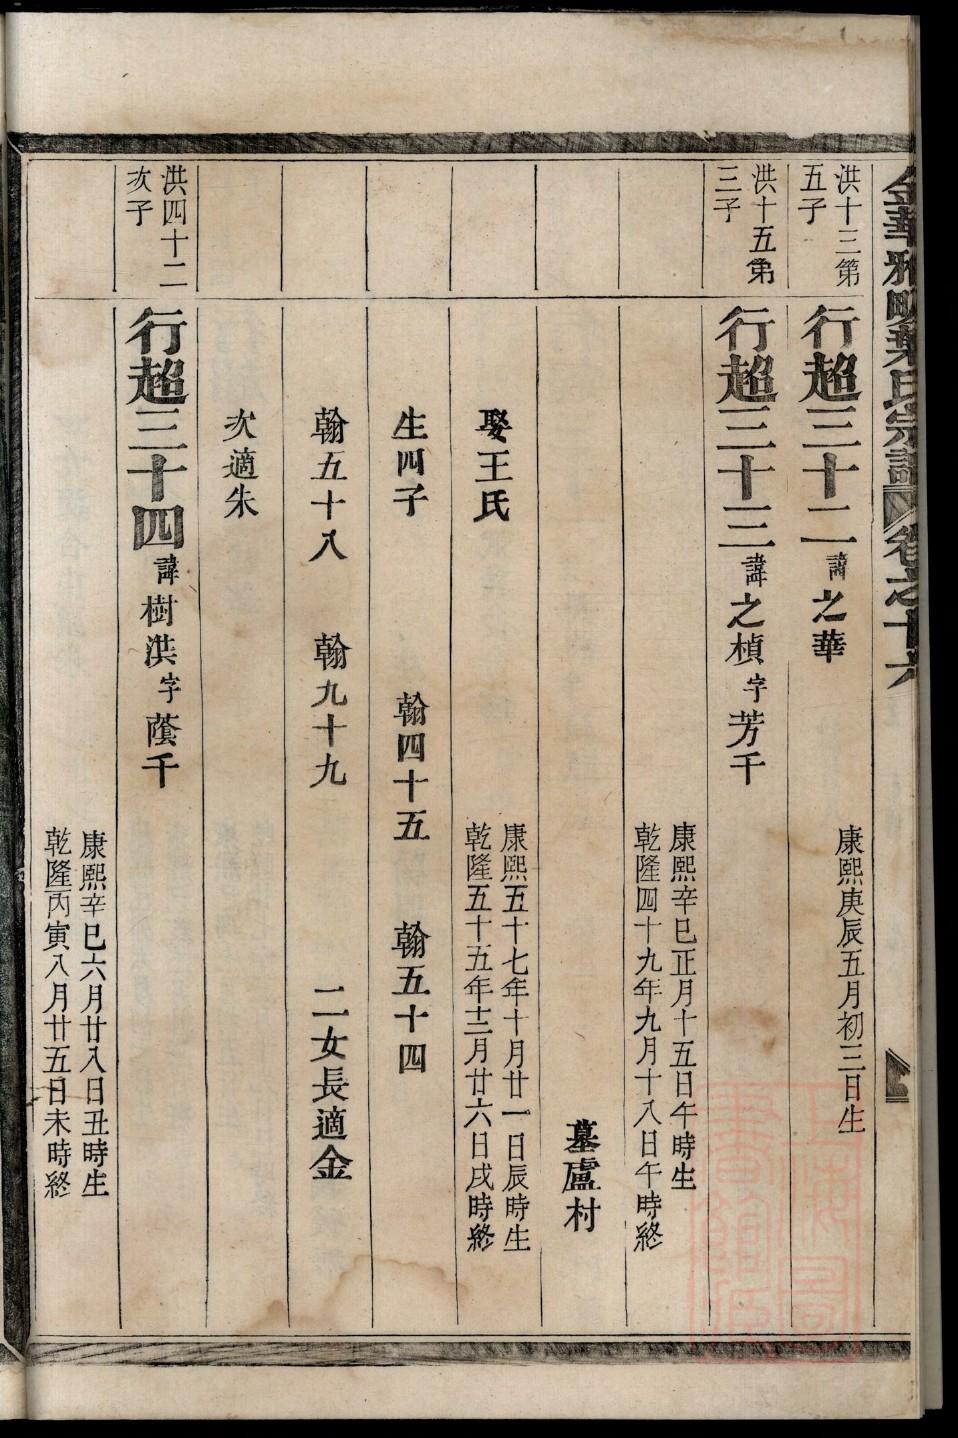 金華雅畈葉氏宗譜 卷之十六
洪十三第
五子
行超三十二 諱之華
康熙庚辰五月初三日生
洪十五第
三子
行超三十三 諱之楨 字芳千
康熙辛巳正月十五日午時生
乾隆四十九年九月十八日午時終
墓盧村
娶王氏
康熙五十七年十月廿一日辰時生
乾隆五十五年十二月廿六日戌時終
生四子 翰四十五 翰五十四
翰五十八 翰九十九 二女長適金
次適朱
洪四十二
次子
行超三十四 諱樹洪 字蔭千
康熙辛巳六月廿八日丑時生
乾隆丙寅八月廿五日未時終
上海圖
書館藏